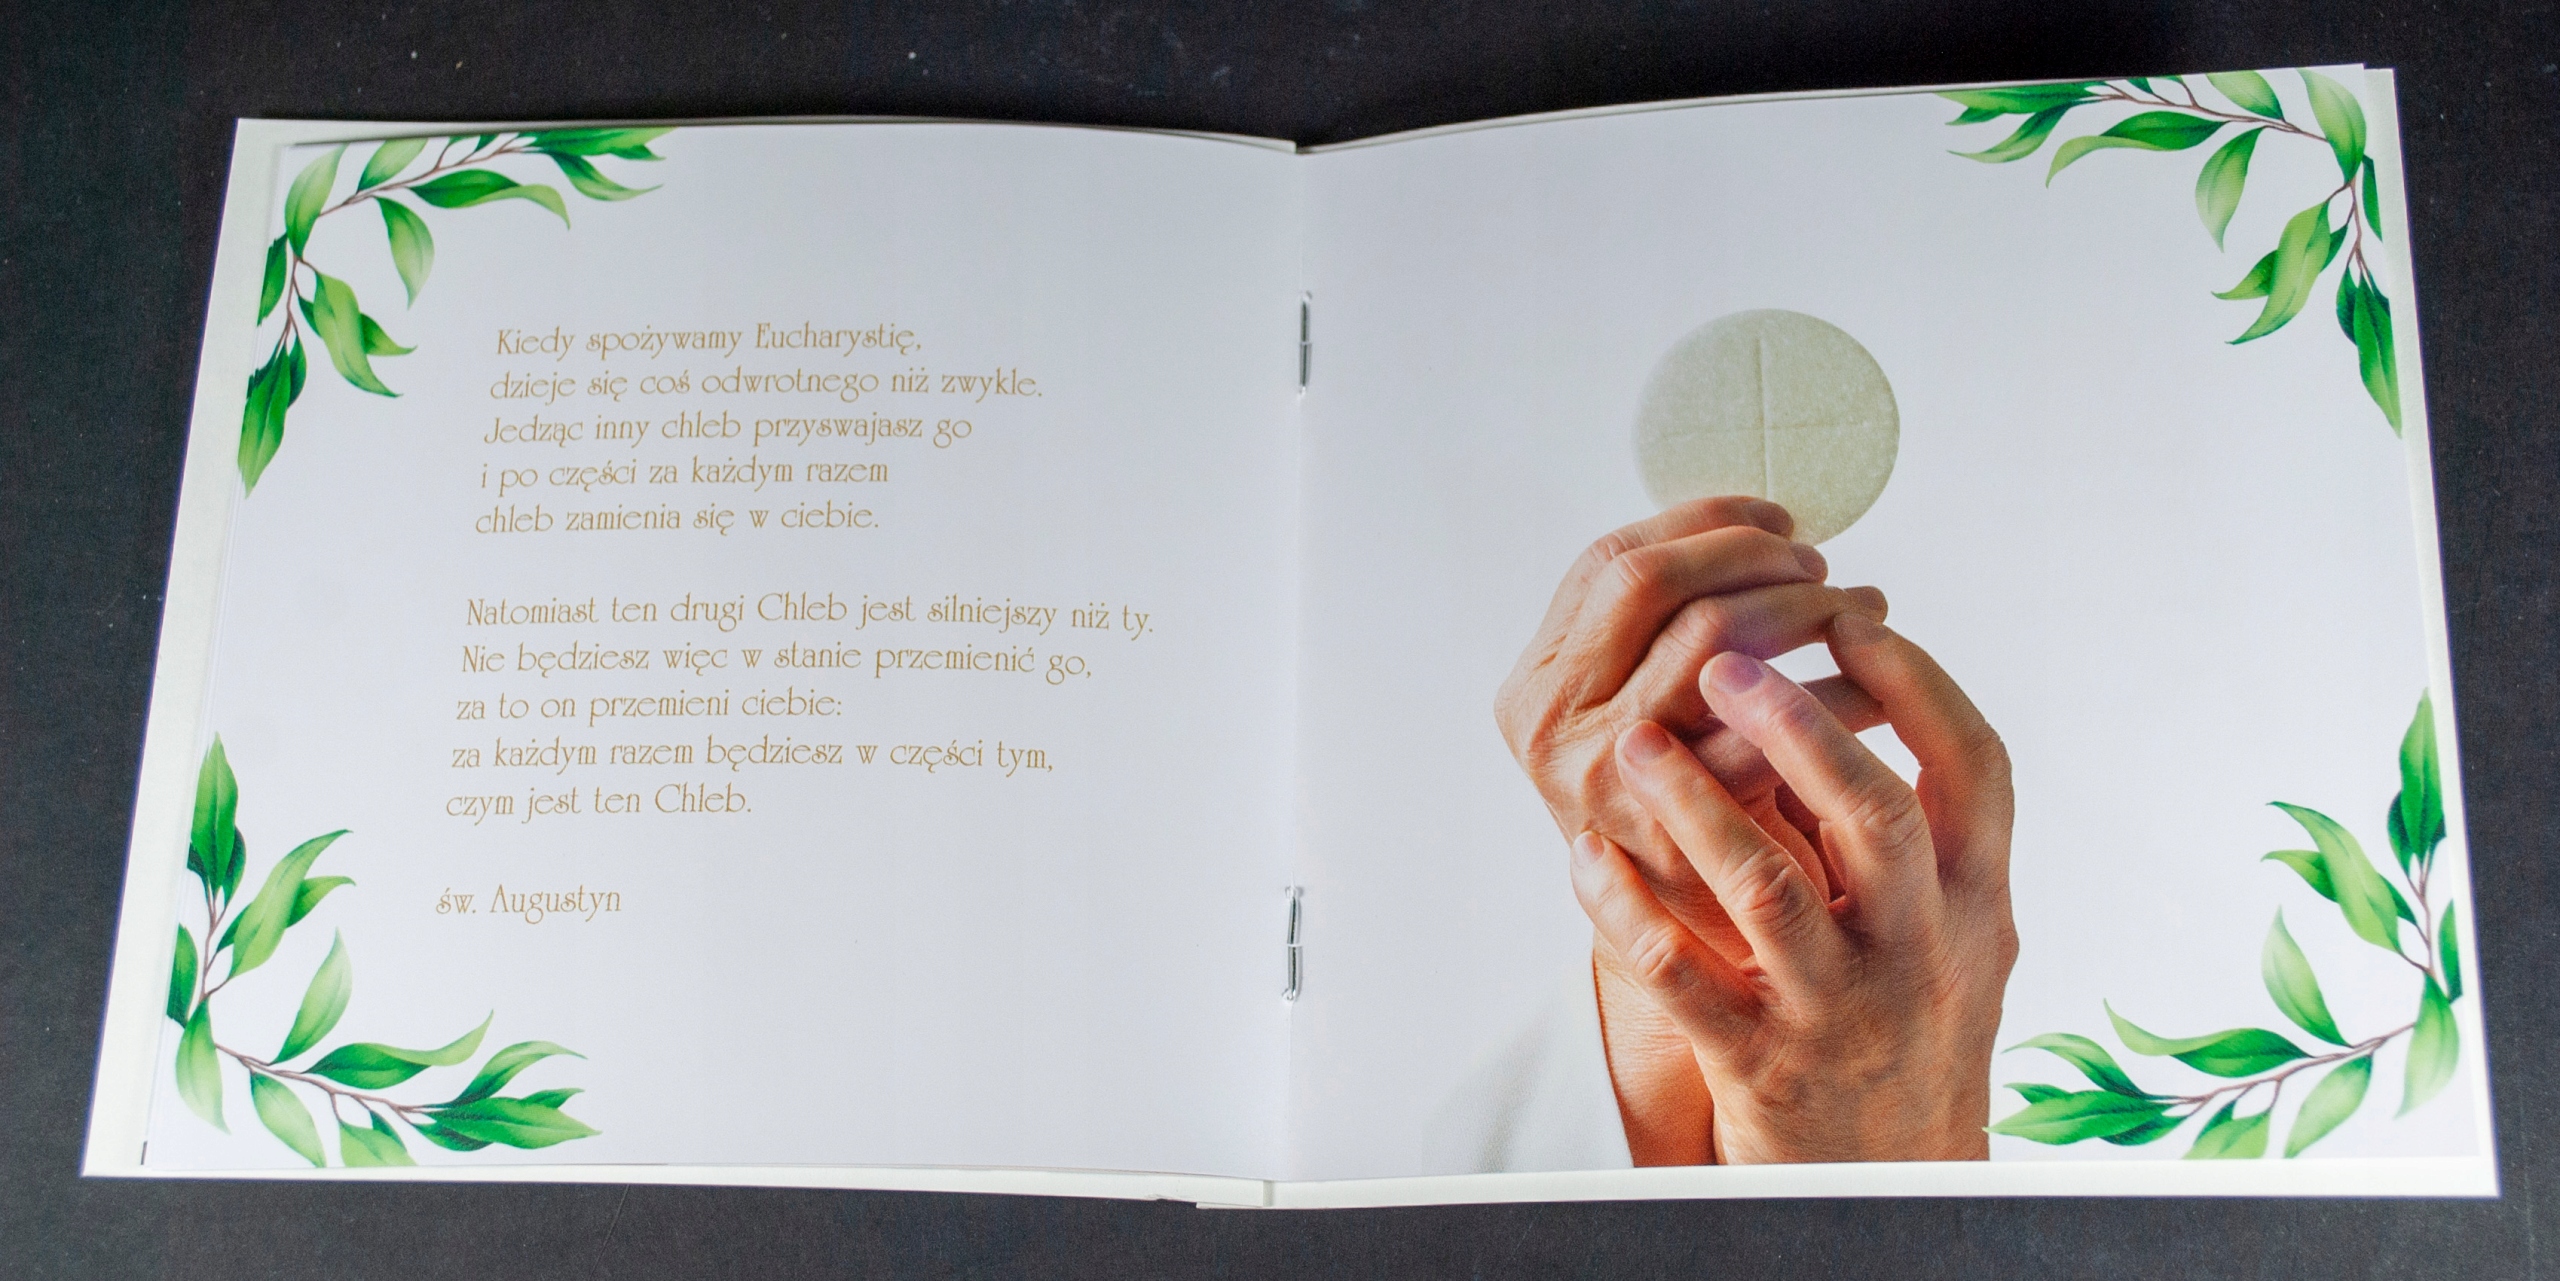 Kiedy spożywamy Eucharystię,
dzieje się coś odwrotnego niż zwykle.
Jedząc inny chleb przyswajasz go
i po części za każdym razem
chleb zamienia się w ciebie.
Natomiast ten drugi Chleb jest silniejszy niż ty.
Nie będziesz więc w stanie przemienić go,
za to on przemieni ciebie:
za każdym razem będziesz w części tym,
czym jest ten Chleb.
św. Augustyn